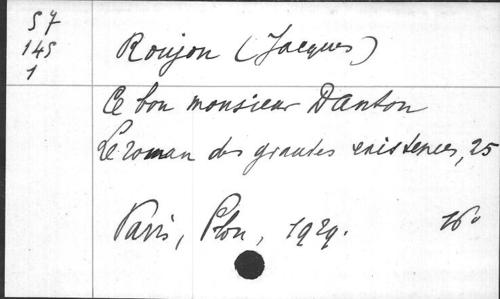 57
145
1
Roujon (Jacques)
Ce bon monsieur Danton
Le roman des grandes existences, 25
Paris, Plon, 1929. 16°